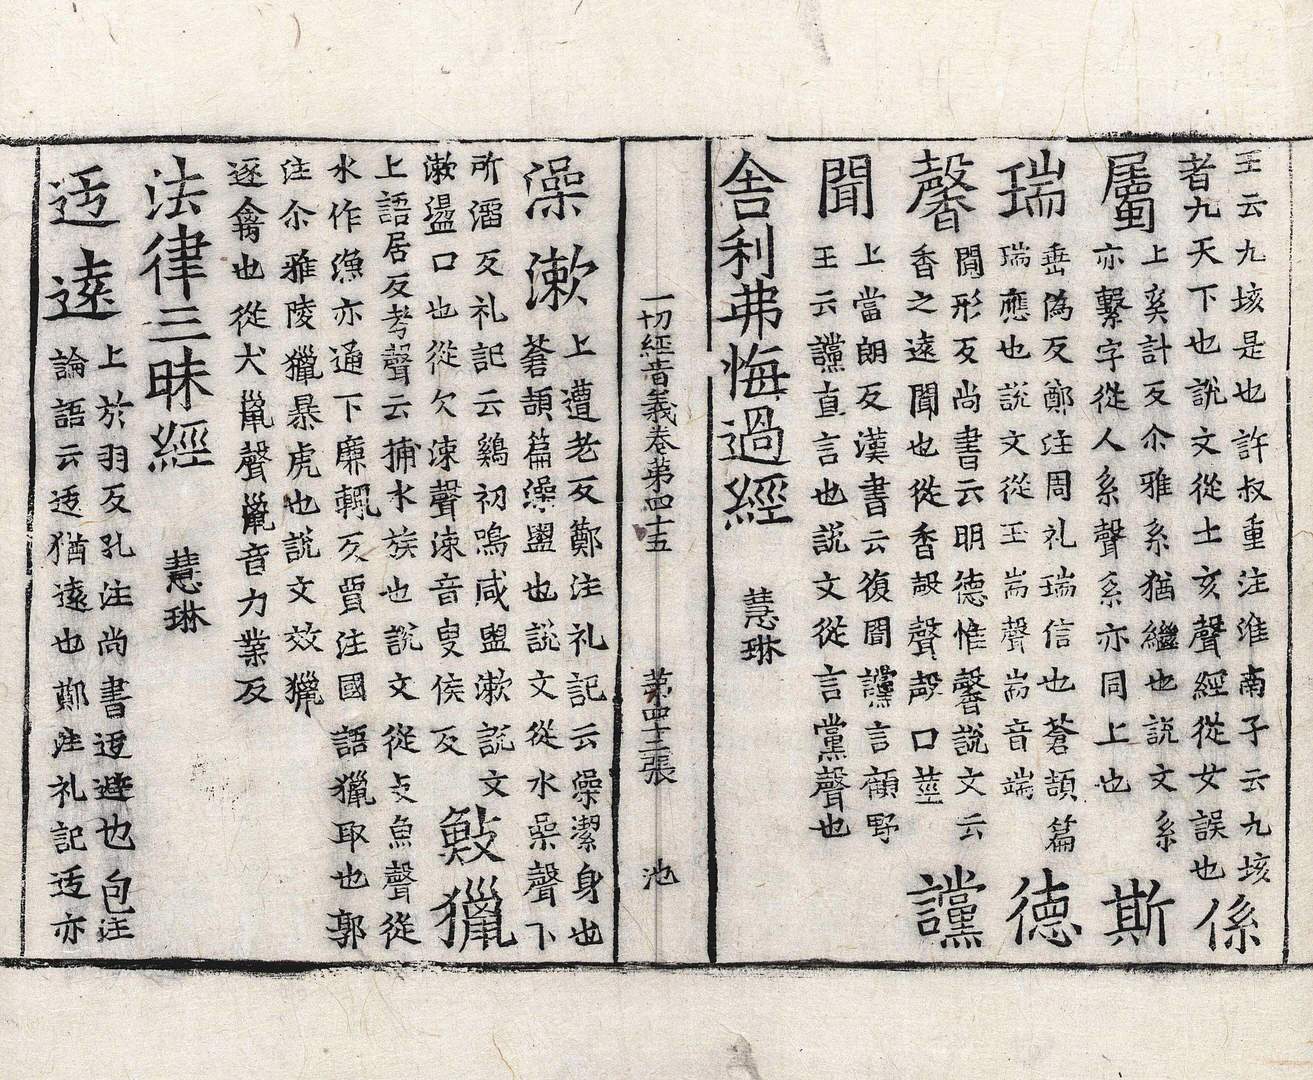 王云九垓是也許叔重注淮南子云九垓
者九天下也說文從土亥聲經從女誤也
係
屬
上奚計反尒雅系猶繼也說文系
亦繫字從人系聲系亦同上也
斯
瑞
垂偽反鄭注周礼瑞信也蒼頡篇
瑞應也說文從玉耑聲耑音端
德
馨
閒形反尚書云明德惟馨說文云
香之遠聞也從香殸聲殸口莖
讜
聞
上當朗反漢書云復聞讜言顧野
王云讜直言也說文從言黨聲也
舍利弗悔過經 慧琳
一切經音義卷第四十五 第四十二張 池
澡漱
上遭老反鄭注礼記云澡潔身也
蒼頡篇澡盥也說文從水喿聲下
所溜反礼記云雞初鳴咸盥漱說文
漱盪口也從欠涑聲涑音叟侯反
獵
上語居反考聲云捕水族也說文從攴魚聲從
水作漁亦通下廉輒反賈注國語獵取也郭
注尒雅陵獵暴虎也說文效獵
逐禽也從犬巤聲巤音力業反
法律三昧經 慧琳
迃遠
上於羽反孔注尚書迃避也包注
論語云迃猶遠也鄭注礼記迃亦